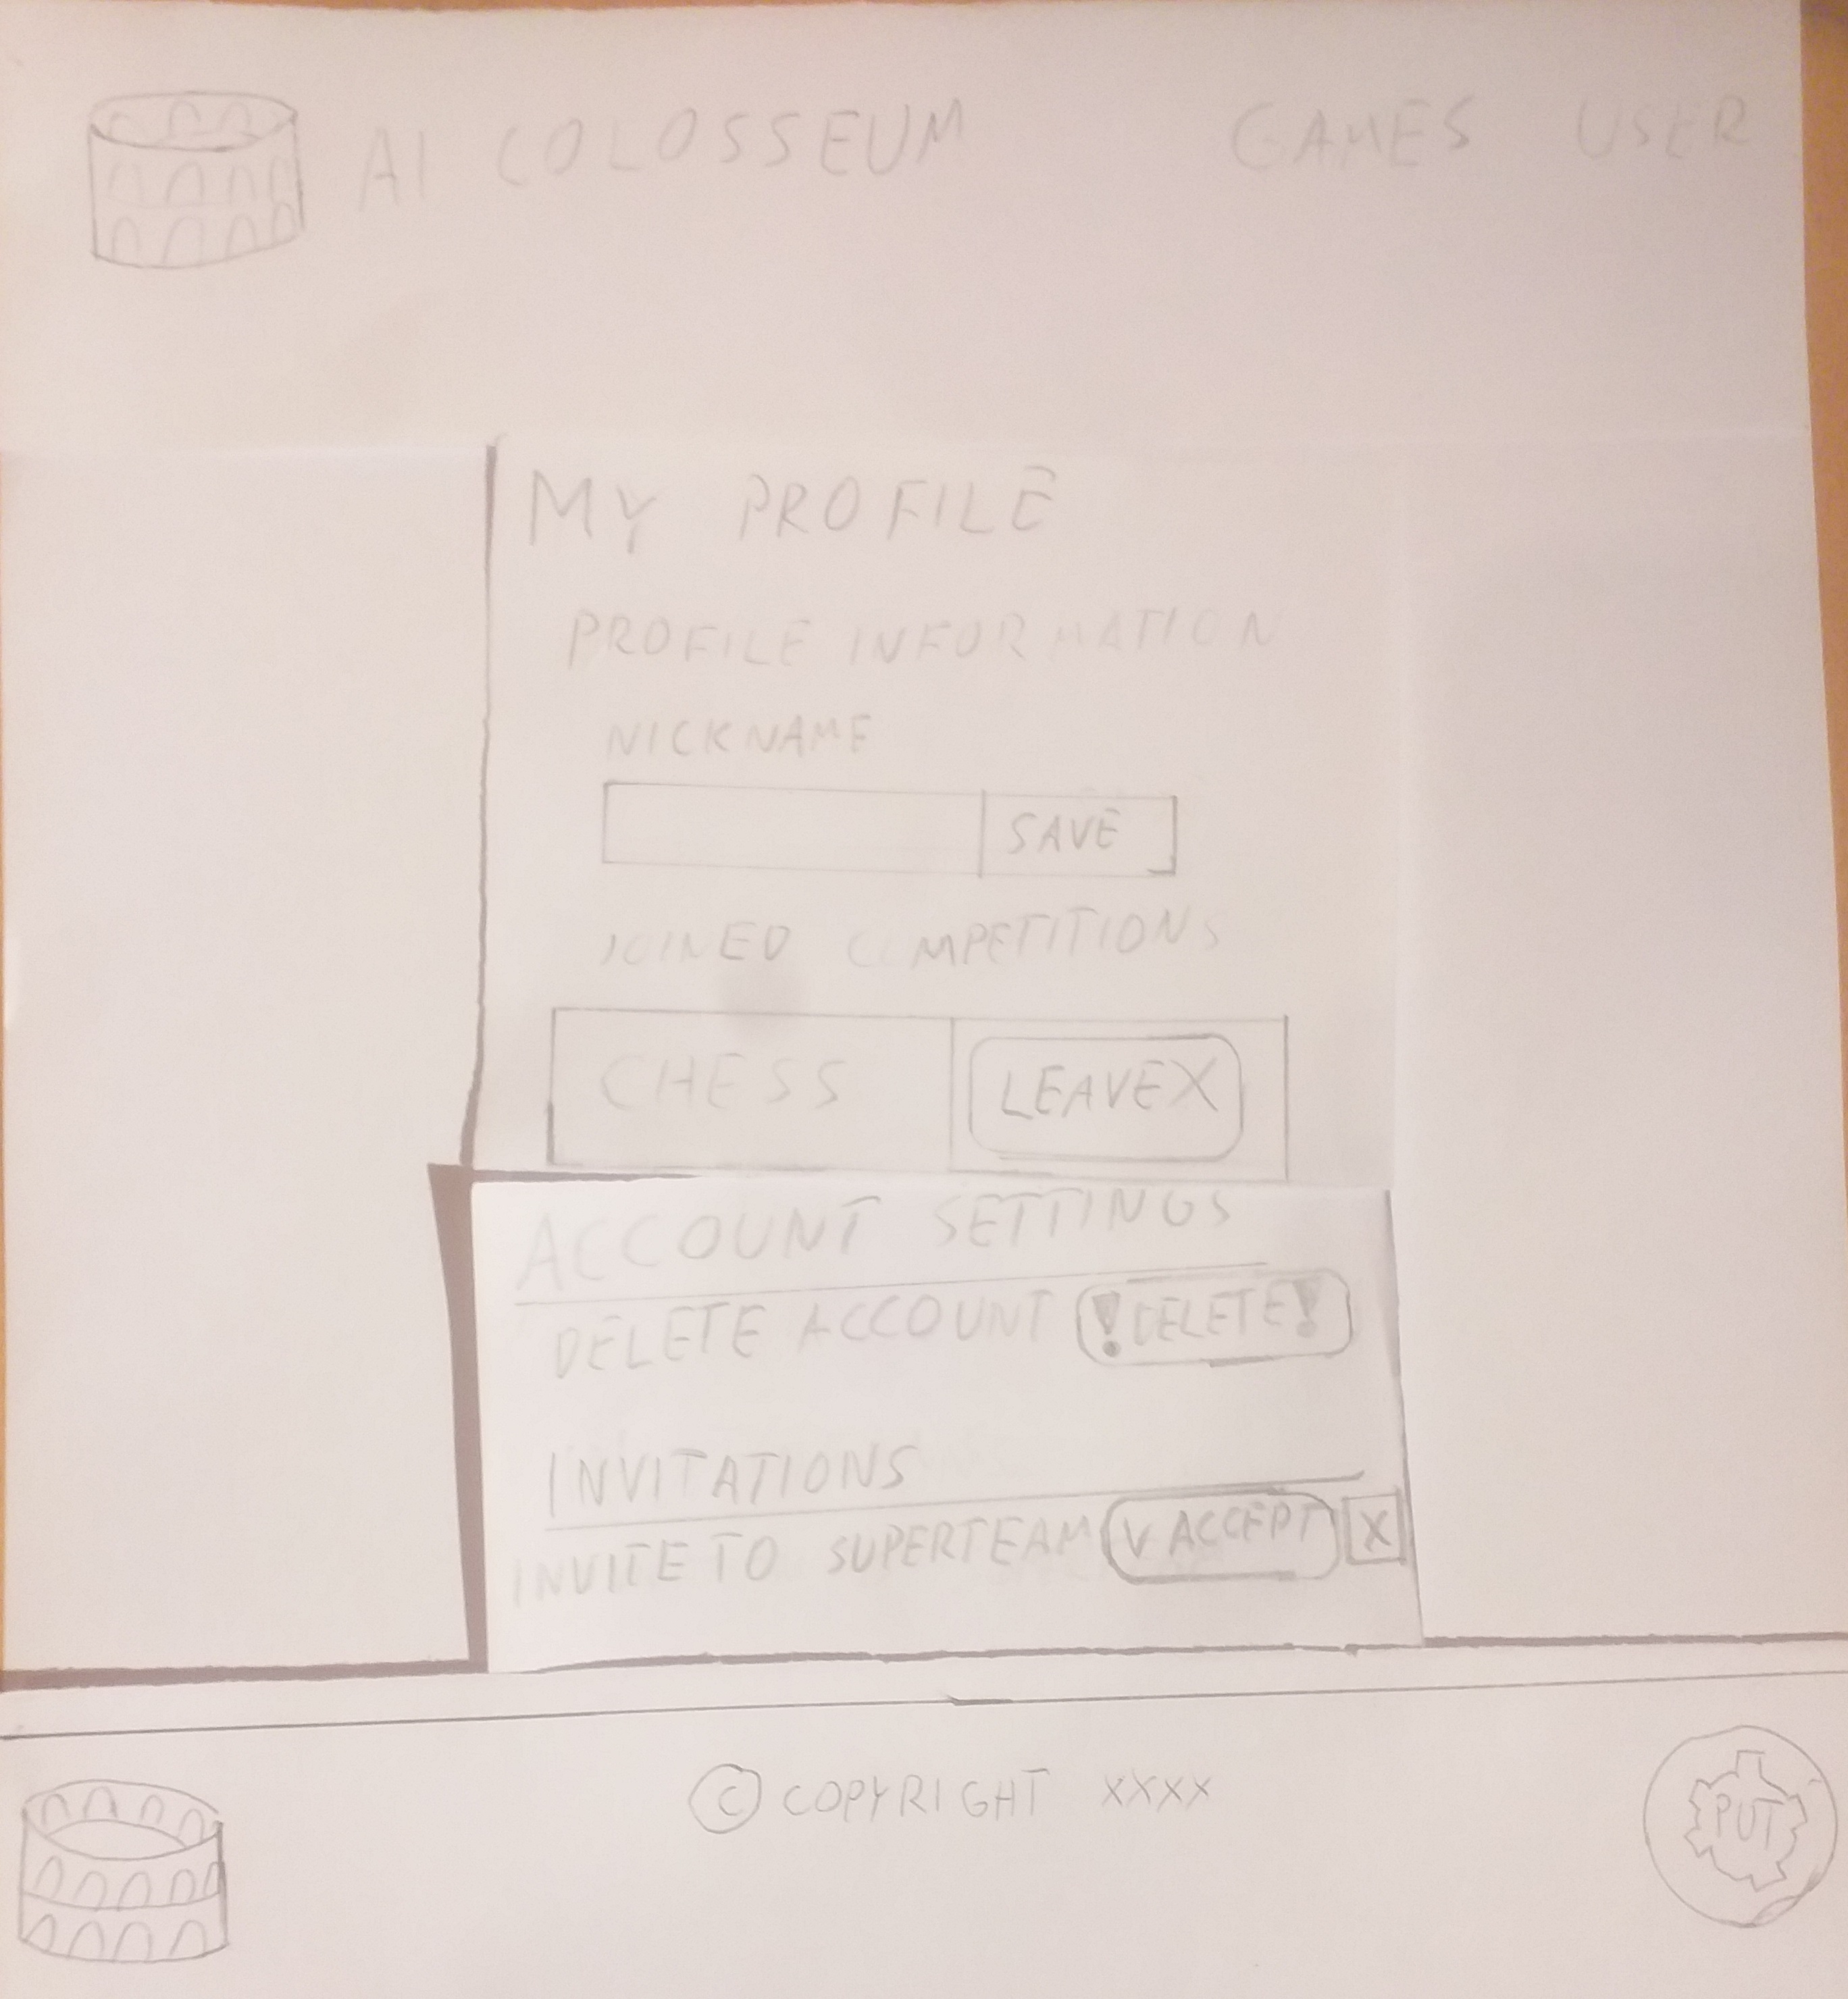 AI COLOSSEUM GAMES USER
MY PROFILE
PROFILE INFORMATION
NICKNAME
SAVE
JOINED COMPETITIONS
CHESS LEAVE X
ACCOUNT SETTINGS
DELETE ACCOUNT ! DELETE !
INVITATIONS
INVITE TO SUPERTEAM V ACCEPT X
© COPYRIGHT XXXX
PUT